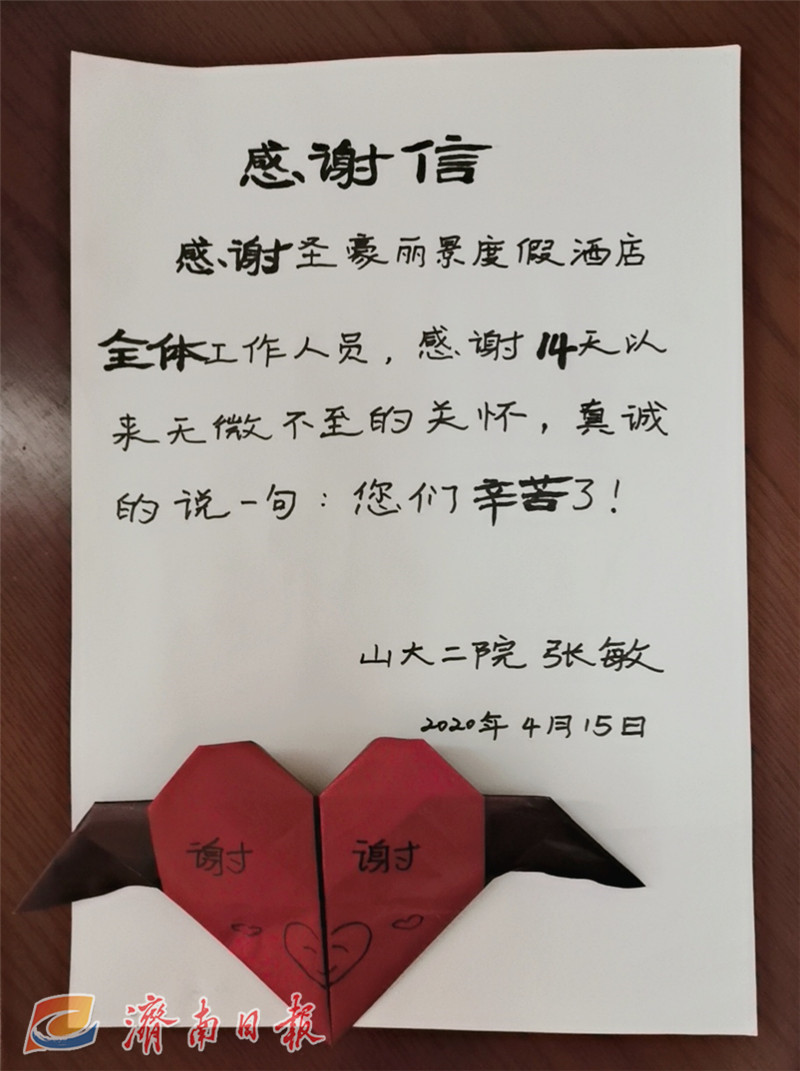 感谢信
感谢圣豪丽景度假酒店
全体工作人员，感谢14天以
来无微不至的关怀，真诚
的说一句：您们辛苦了！
山大二院 张敏
2020年4月15日
谢 谢
濟南日報